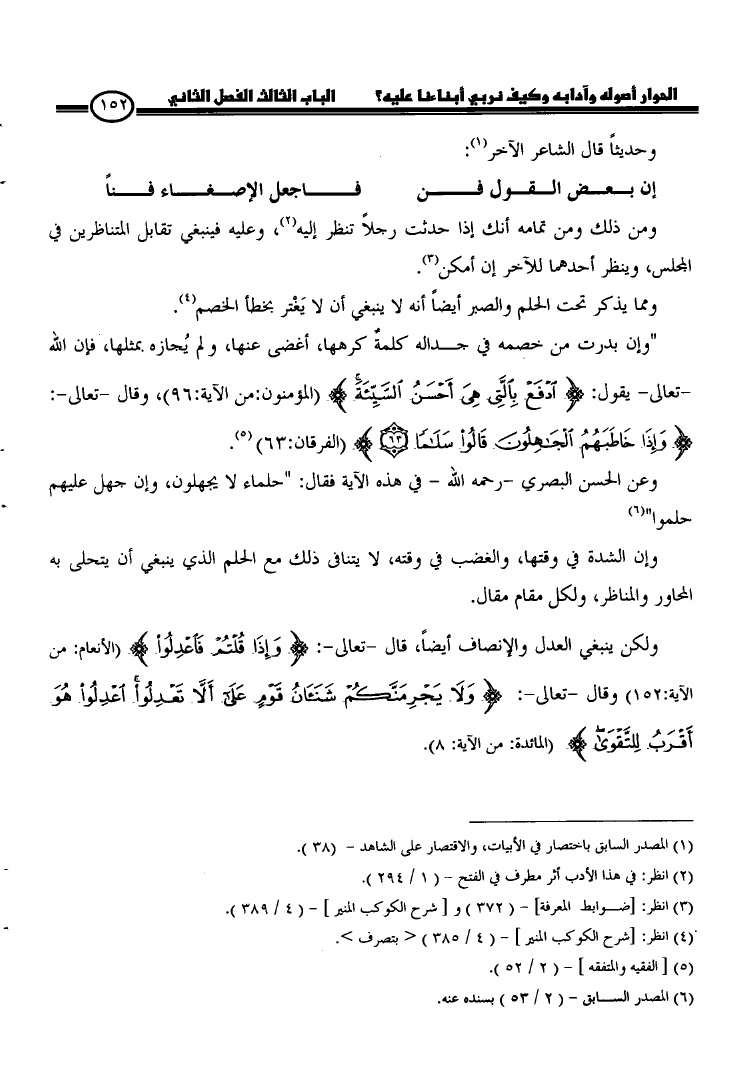 الحوار أصوله وآدابه وكيف نربي أبناءنا عليه؟ الباب الثالث الفصل الثاني ١٥٢
وحديثاً قال الشاعر الآخر(١):
إن بـعـض الـقـول فـــن فـــاجعل الإصـغـاء فـناً
ومن ذلك ومن تمامه أنك إذا حدثت رجلاً تنظر إليه(٢)، وعليه فينبغي تقابل المتناظرين في
المجلس، وينظر أحدهما للآخر إن أمكن(٣).
ومما يذكر تحت الحلم والصبر أيضاً أنه لا ينبغي أن لا يَغْتر بخطأ الخصم(٤).
"وإن بدرت من خصمه في جـداله كلمةٌ كرهها، أغضى عنها، ولم يُجازه بمثلها، فإن الله
-تعالى- يقول: ﴿ ٱدْفَعْ بِٱلَّتِى هِىَ أَحْسَنُ ٱلسَّيِّئَةَ ۚ ﴾ (المؤمنون:من الآية:٩٦)، وقال -تعالى-:
﴿ وَإِذَا خَاطَبَهُمُ ٱلْجَـٰهِلُونَ قَالُوا۟ سَلَـٰمًا ٦٣ ﴾ (الفرقان:٦٣)(٥).
وعن الحسن البصري -رحمه الله - في هذه الآية فقال: "حلماء لا يجهلون، وإن جهل عليهم
حلموا"(٦)
وإن الشدة في وقتها، والغضب في وقته، لا يتنافى ذلك مع الحلم الذي ينبغي أن يتحلى به
المحاور والمناظر، ولكل مقام مقال.
ولكن ينبغي العدل والإنصاف أيضاً، قال -تعالى-: ﴿ وَإِذَا قُلْتُمْ فَٱعْدِلُوا۟ ﴾ (الأنعام: من
الآية:١٥٢) وقال -تعالى-: ﴿ وَلَا يَجْرِمَنَّكُمْ شَنَـَٔانُ قَوْمٍ عَلَىٰٓ أَلَّا تَعْدِلُوا۟ ۚ ٱعْدِلُوا۟ هُوَ
أَقْرَبُ لِلتَّقْوَىٰ ۖ ﴾ (المائدة: من الآية: ٨).
(١) المصدر السابق باختصار في الأبيات، والاقتصار على الشاهد - (٣٨ ).
(٢) انظر: في هذا الأدب أثر مطرف في الفتح - ( ١ / ٢٩٤ ).
(٣) انظر: [ضـوابط المعرفة] - ( ٣٧٢ ) و [ شرح الكوكب المنير ] - ( ٤ / ٣٨٩ ).
(٤) انظر: [شرح الكوكب المنير ] - ( ٤ / ٣٨٥ ) < بتصرف >.
(٥) [ الفقيه والمتفقه ] - ( ٢ / ٥٢ ).
(٦) المصدر الســابق - ( ٢ / ٥٣ ) بسنده عنه.